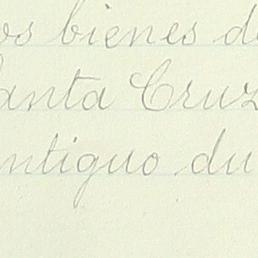 os bienes de
Santa Cruz
antiguo du